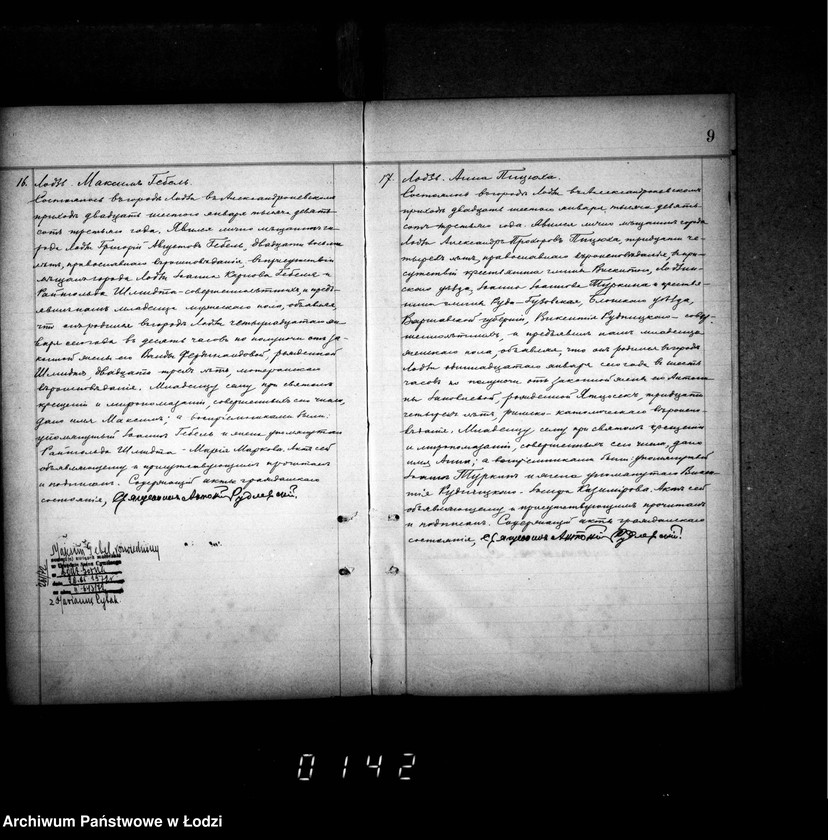 9
16. Лодзь. Максимъ Гебель.
Состоялось въ городѣ Лодзи въ Александроневскомъ
приходѣ двадцать шестого января тысяча девять-
сотъ третьяго года. Явился лично мѣщанинъ го-
рода Лодзи Григорій Августовъ Гебель, двадцати восьми
лѣтъ, православнаго вѣроисповѣданія, въ присутствіи
мѣщанъ города Лодзи Іоанна Гебеля и
Райнгольда Шмидта совершеннолѣтнихъ, и предъ-
явилъ намъ младенца мужескаго пола, объявляя,
что онъ родился въ городѣ Лодзи четырнадцатого ян-
варя сего года въ десять часовъ по полуночи отъ за-
конной жены его Фердинандовой, рожденной
Шмидтъ, двадцати трехъ лѣтъ, лютеранскаго
вѣроисповѣданія. Младенцу сему при святомъ
крещеніи и мѵропомазаніи, совершенныхъ сего числа,
дано имя Максимъ; а воспріемниками были:
упомянутый Іоаннъ Гебель и жена упомянутаго
Райнгольда Шмидта - Марія Маркова. Актъ сей
объявляющему и присутствующимъ прочитанъ
и подписанъ. Содержащій акты гражданскаго
состоянія, Священникъ Антоній Рудлевскій.
Maksim Gebel
z Marianna Rybak
17. Лодзь. Анна Пицюха.
Состоялось въ городѣ Лодзи въ Александроневскомъ
приходѣ двадцать шестого января, тысяча девять-
сотъ третьяго года. Явился лично мѣщанинъ города
Лодзи Александръ Пицюха, тридцати че-
тырехъ лѣтъ, православнаго вѣроисповѣданія, въ при-
сутствіи крестьянина гмины Вискитно, Лодзин-
скаго уѣзда, Іоанна Туркина и крестья-
нина гмины Гузовская, Блонскаго уѣзда,
Варшавской губерніи, Викентія Рудницкаго - совер-
шеннолѣтнихъ, и предъявилъ намъ младенца
женскаго пола, объявляя, что онъ родился въ городѣ
Лодзи одиннадцатаго января сего года въ шесть
часовъ по полуночи, отъ законной жены его Антони-
ны рожденной тридцати
четырехъ лѣтъ, римско-католическаго вѣроиспо-
вѣданія. Младенцу сему при святомъ крещеніи
и мѵропомазаніи, совершенныхъ сего числа, дано
имя Анна; а воспріемниками были: упомянутый
Іоаннъ Туркинъ и жена упомянутаго Викен-
тія Рудницкаго - Казимірова. Актъ сей
объявляющему и присутствующимъ прочитанъ
и подписанъ. Содержащій акты гражданскаго
состоянія, Священникъ Антоній Рудлевскій.
0142
Archiwum Państwowe w Łodzi